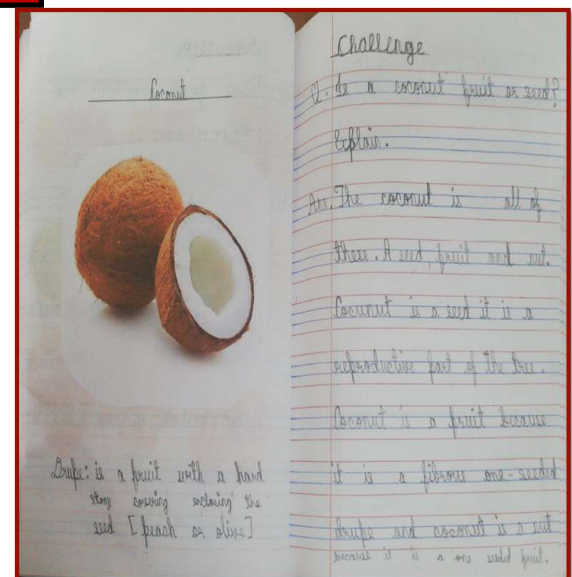 Coconut
Drupe: is a fruit with a hard
stony covering enclosing the
seed [peach or olive]
Challenge
Q. Is a coconut fruit or seed?
Explain.
Ans. The coconut is all of
these. A seed, fruit and nut.
Cocunut is a seed it is a
reproductive part of the tree.
Coconut is a fruit because
it is a fibrous one-seeded
drupe and coconut is a nut
because it is a one seeded fruit.